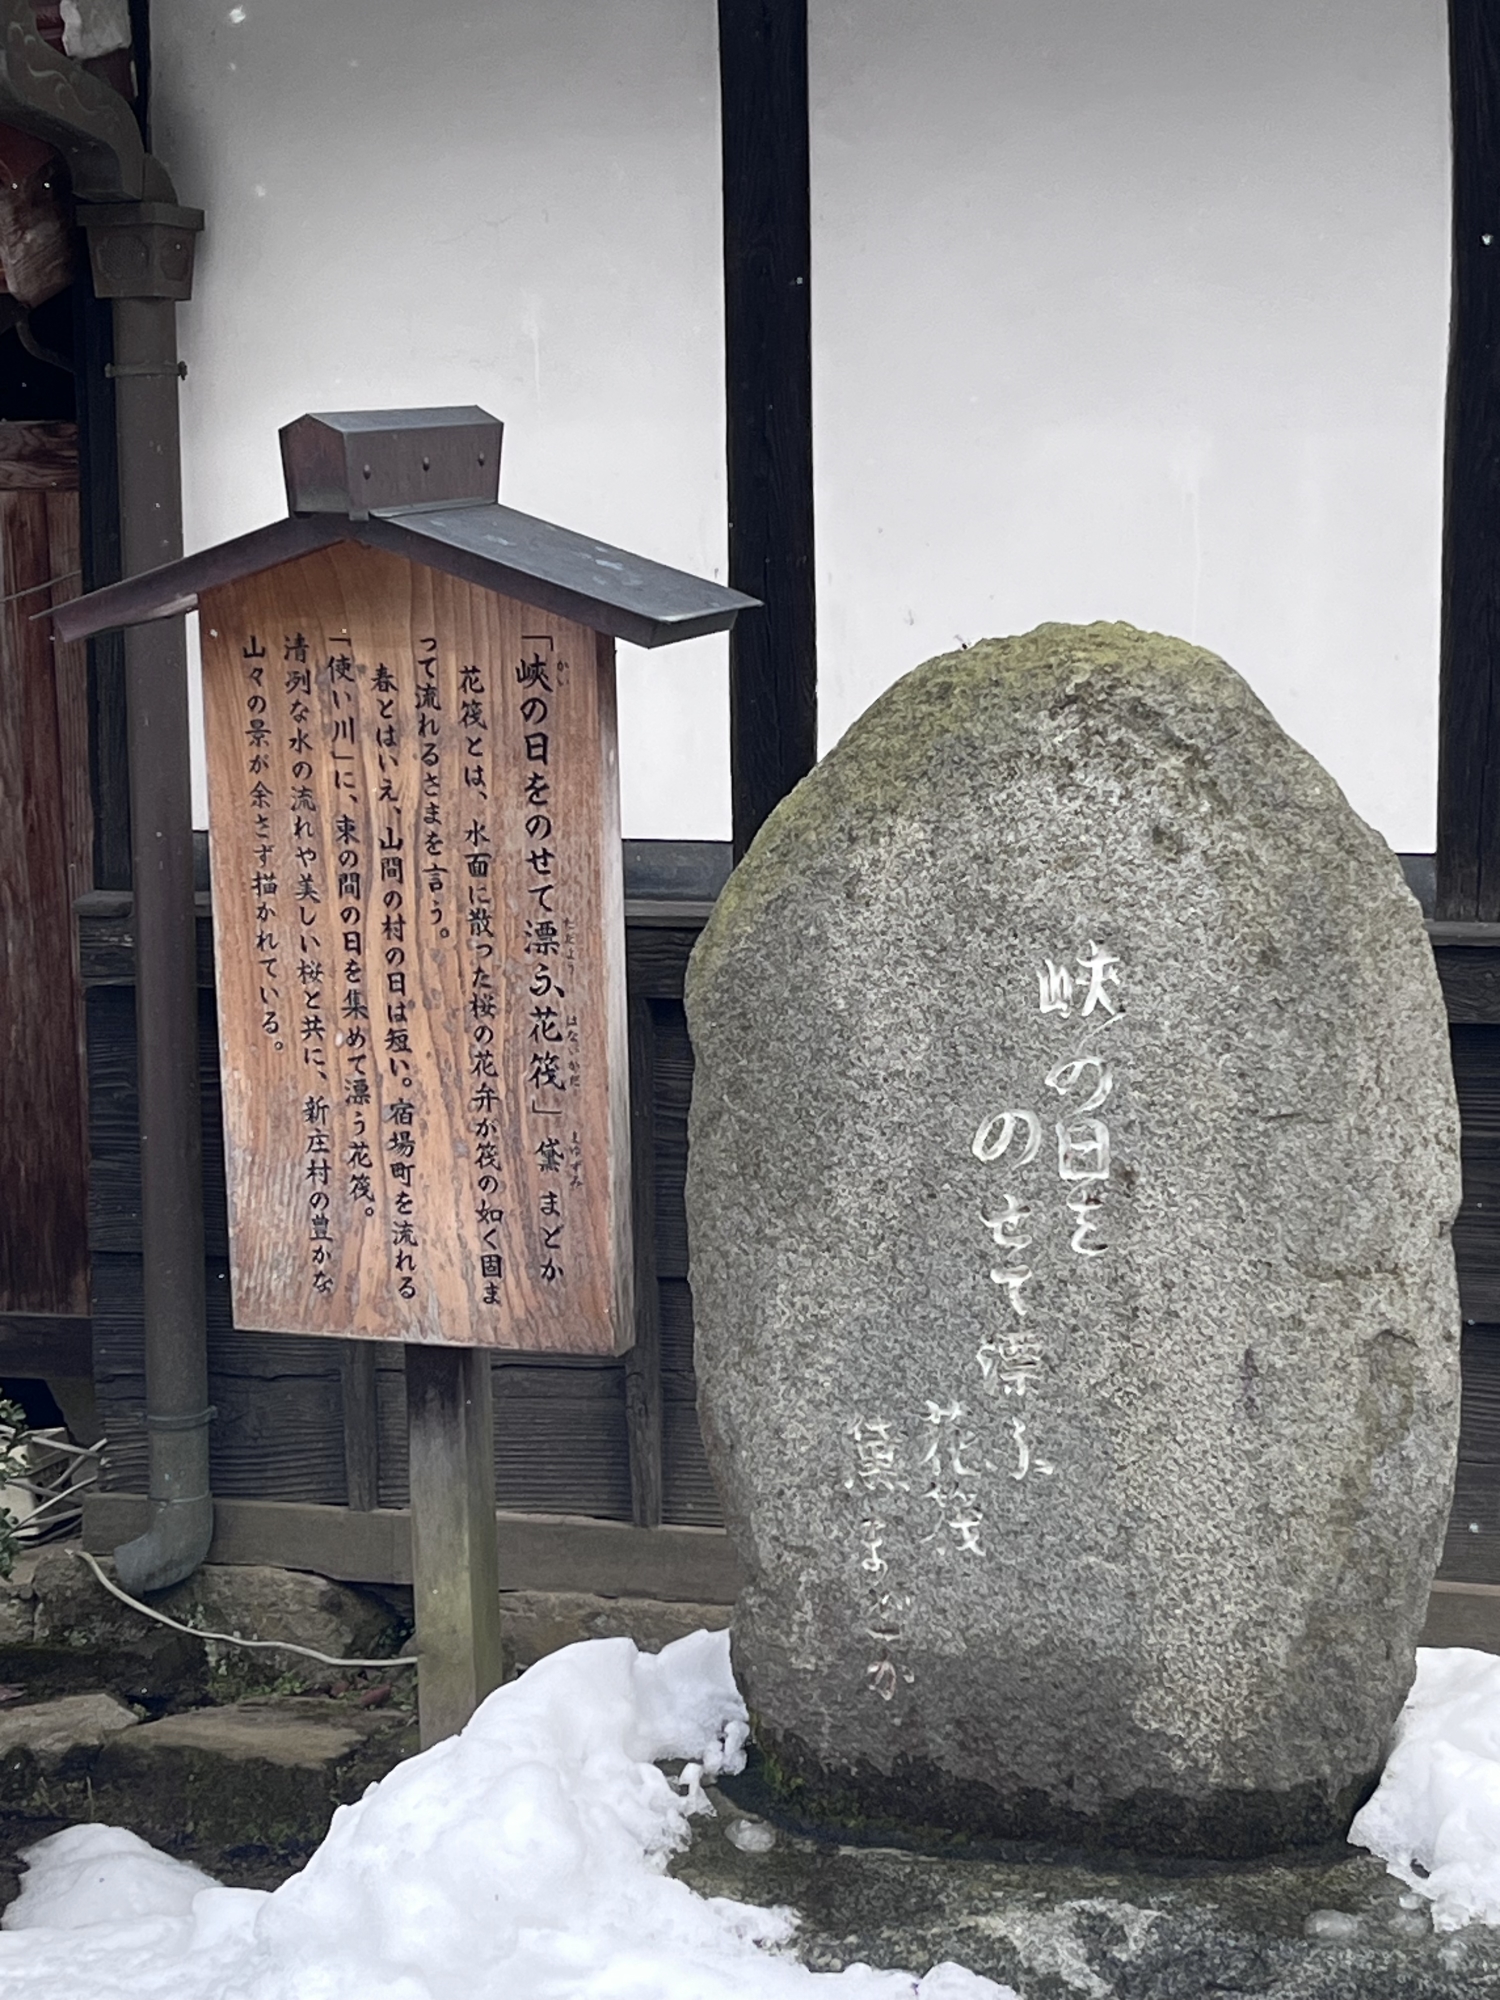 「峡の日をのせて漂う、花筏」 黛 まどか
かい
ただよう
はないかだ
まゆずみ
花筏とは、水面に散った桜の花弁が筏の如く固ま
って流れるさまを言う。
春とはいえ、山間の村の日は短い。宿場町を流れる
「使い川」に、束の間の日を集めて漂う花筏。
清冽な水の流れや美しい桜と共に、新庄村の豊かな
山々の景が余さず描かれている。
峡の日を
のせて漂ふ
花筏
黛まどか